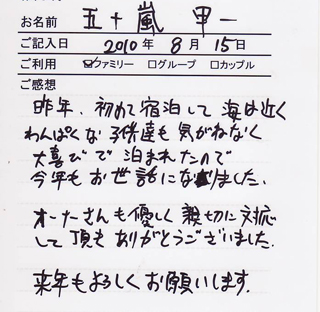 お名前 五十嵐 甲一
ご記入日 2010年 8月 15日
ご利用 ☑ファミリー □グループ □カップル
ご感想
昨年、初めて宿泊して 海は近く
わんぱくな 子供達も 気がねなく
大喜びで 泊まれたので
今年も お世話になりました。
オーナーさんも 優しく 親切に 対応
して 頂き ありがとうございました。
来年も よろしく お願いします。